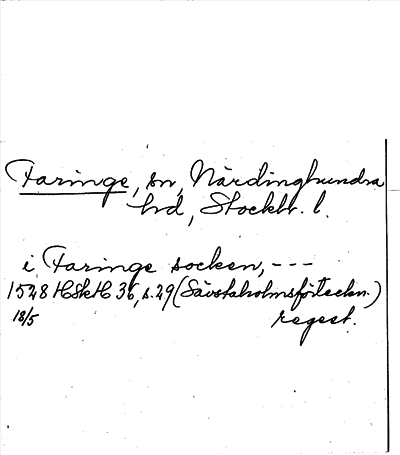 Faringe, sn, Närdinghundra
hd, Stockh. l.
i Faringe socken, ---
1528 HSkH 36, s. 29 (Sävstaholmsförteckn.)
18/5 regest.